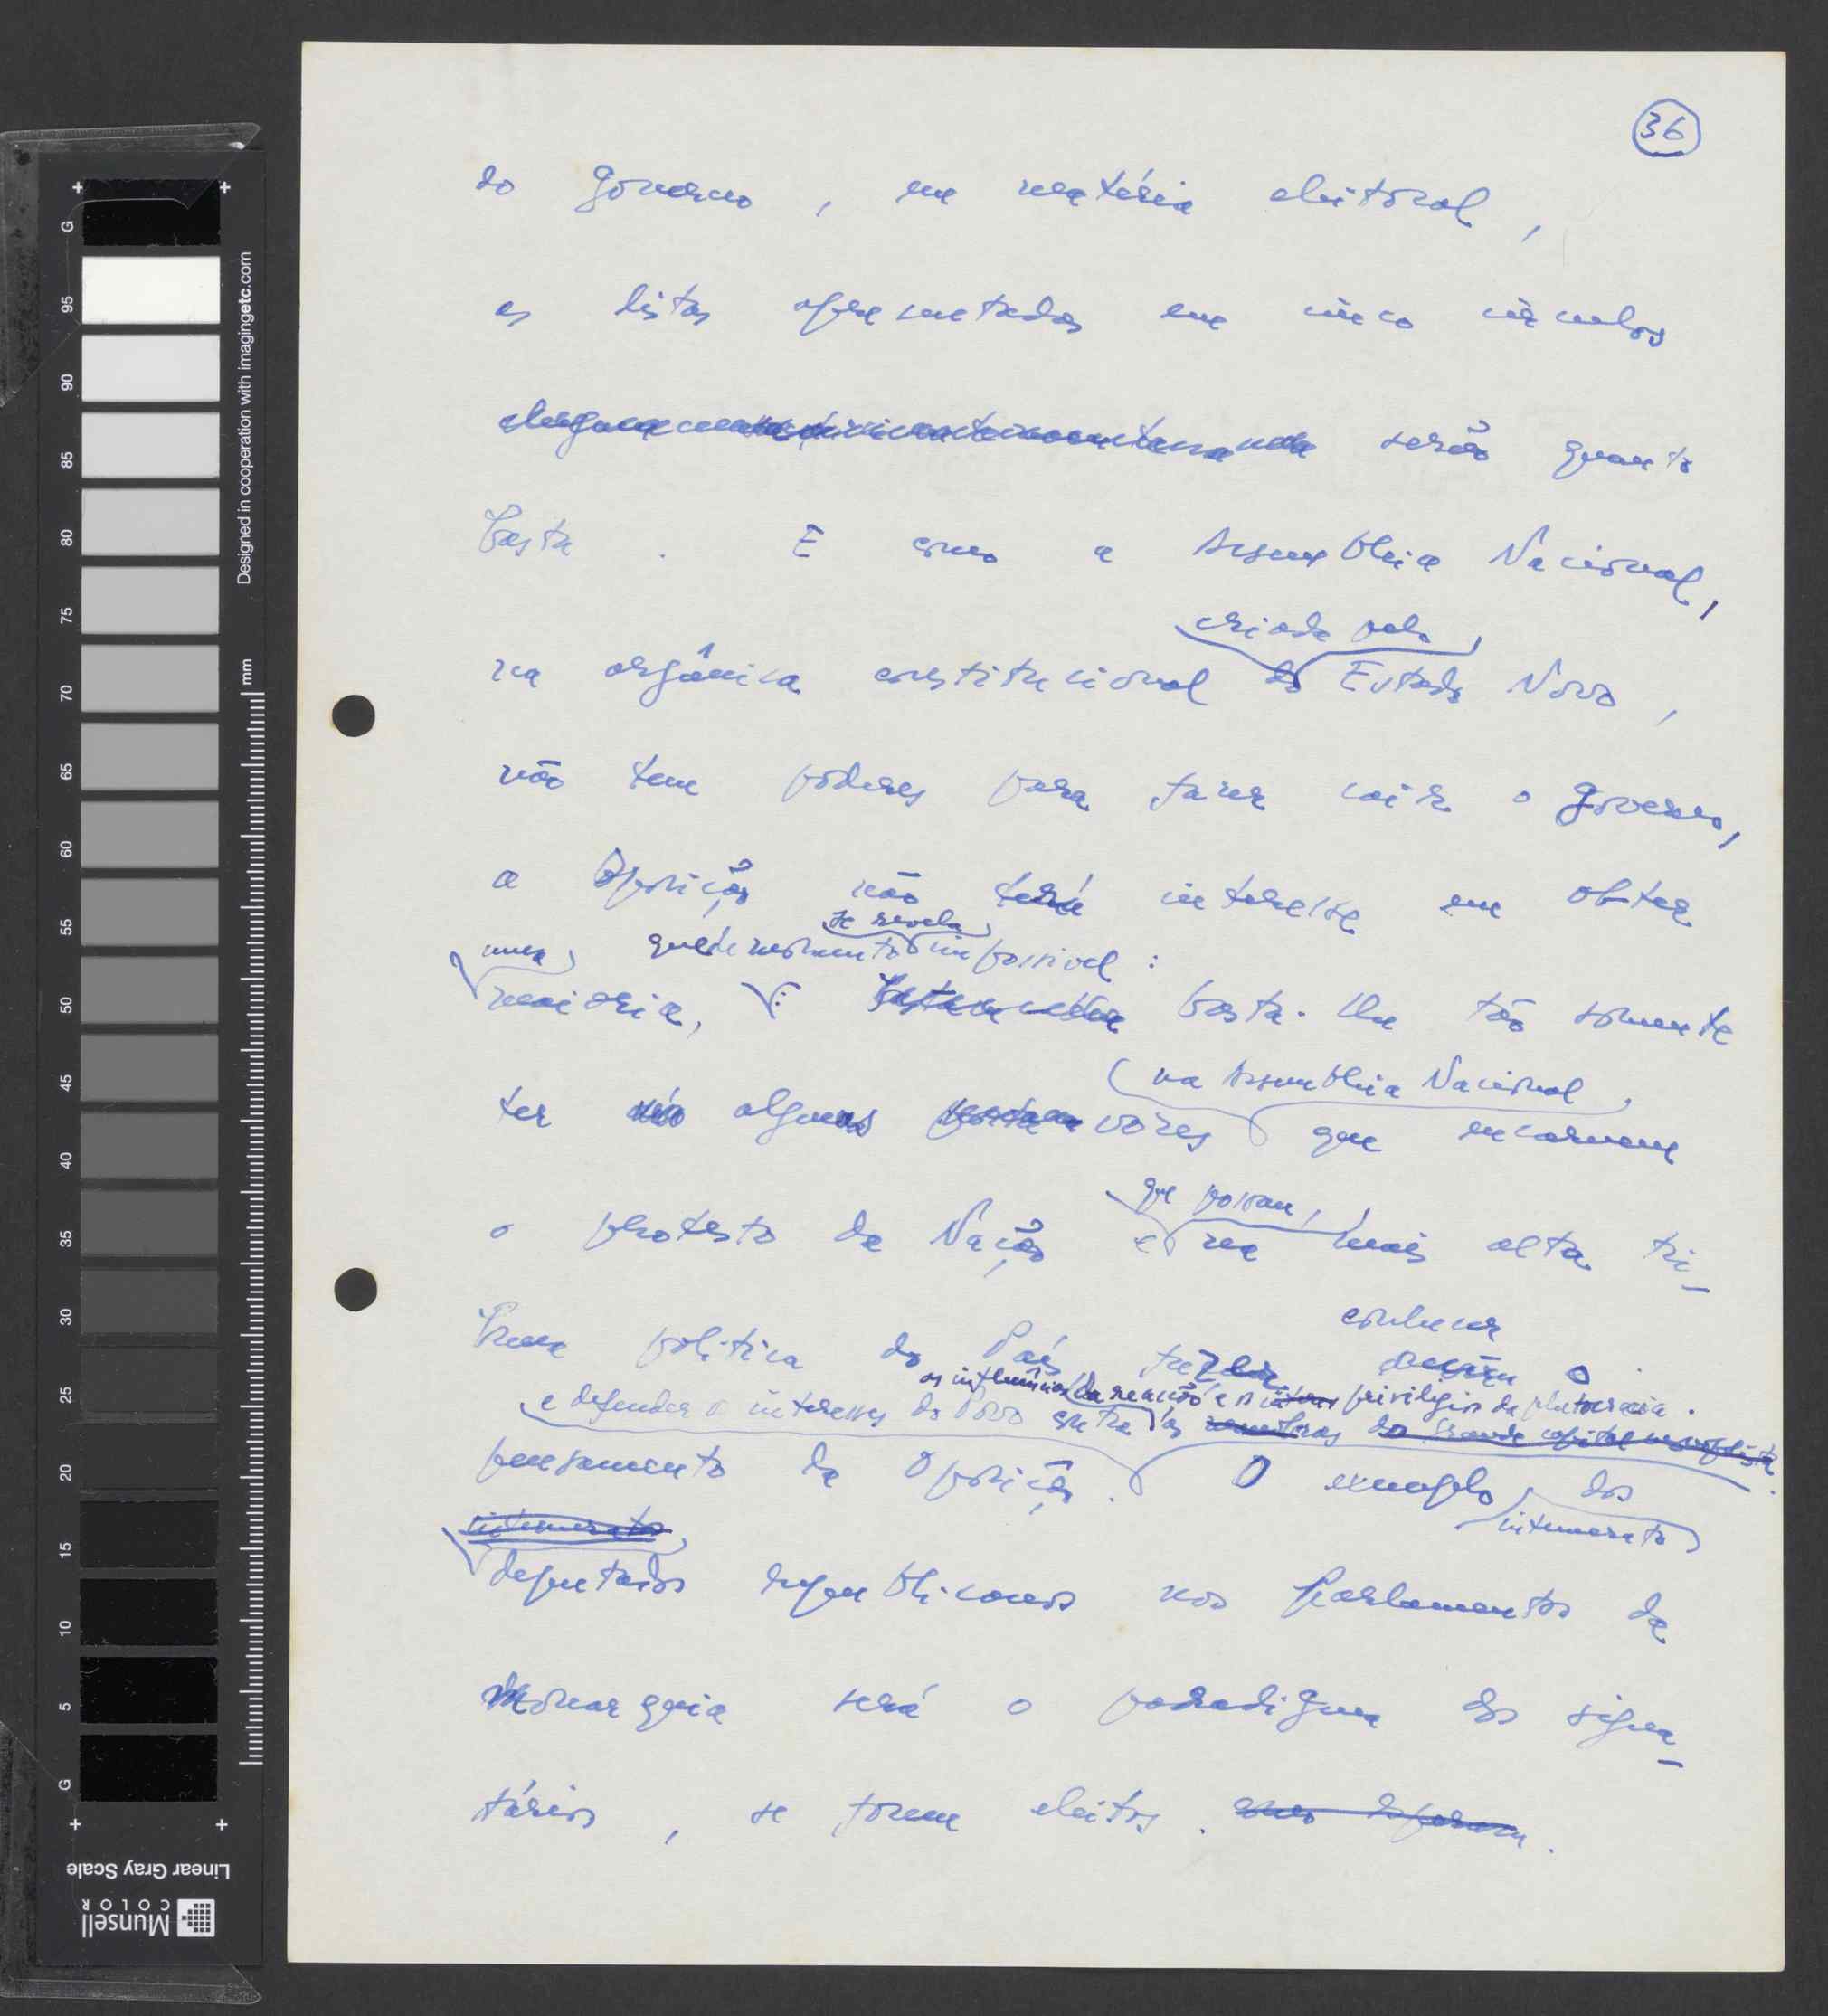 36
do governo, em matéria eleitoral,
as listas apresentadas em cinco círculos
serão quanto
basta. E como a Assembleia Nacional,
criada pelo
na orgânica constitucional do Estado Novo,
não tem poderes para fazer cair o governo,
a Oposição não terá interesse em obter
se revela
uma que de momento impossível:
maioria, basta-lhe tão somente
(na Assembleia Nacional,
ter algumas vozes que encarnem
que possam,
o protesto da Nação e na mais alta tri-
conhecer
buna política do País, o
as influências da reacção e privilégios da plutocracia.
e defender os interesses do Povo contra as do grande capital
pensamento da Oposição. O exemplo dos
intemerato
intemeratos
deputados republicanos nos Parlamentos da
Monarquia será o paradigma dos signa-
tários, se forem eleitos.
G 95 90 85 80 75 70 65 60 55 50 45 40 35 30 25 20 15 10 5 G
Designed in cooperation with imagingetc.com
mm
Linear Gray Scale
Munsell
COLOR